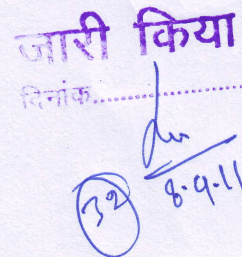 जारी किया
दिनांक..................
8.9.11
32